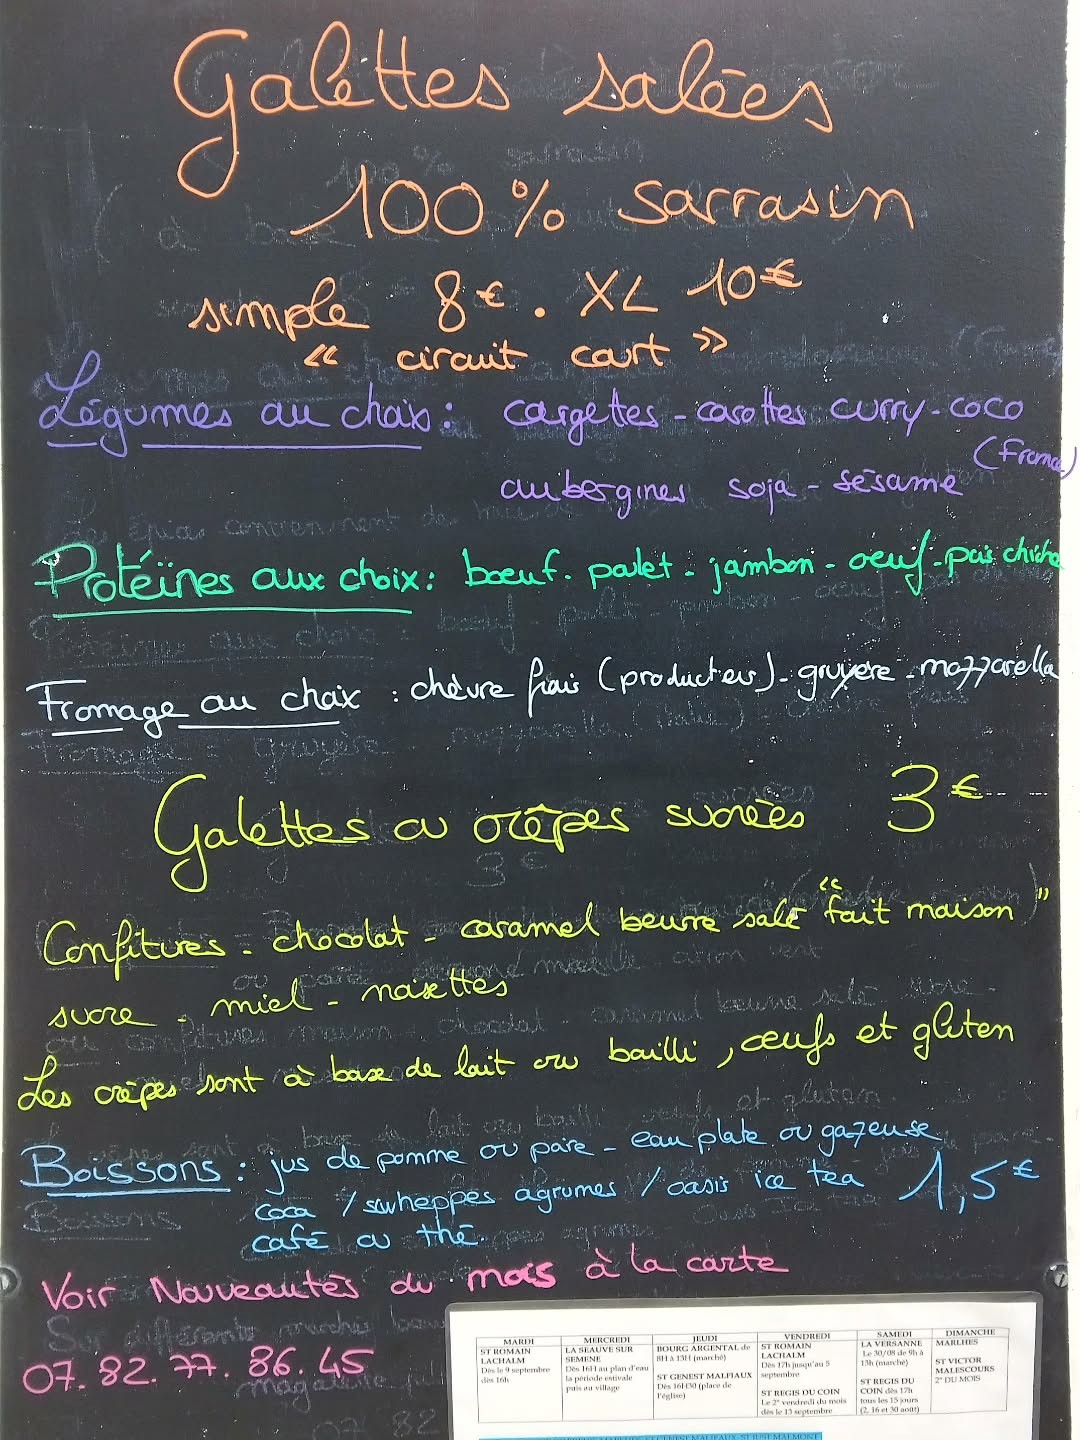 Galettes salées
100% sarrasin
simple 8€. XL 10€
"circuit court"
Légumes au choix : courgettes - carottes curry-coco
(France)
aubergines soja - sésame
Protéïnes aux choix : boeuf. poulet - jambon - oeuf - pois chiche
Fromage au choix : chèvre frais (producteur) - gruyère - mozzarella
Galettes ou crêpes sucrées 3€
Confitures - chocolat - caramel beurre salé "fait maison"
sucre - miel - noisettes
Les crêpes sont à base de lait ou bailli, oeufs et gluten
Boissons : jus de pomme ou poire - eau plate ou gazeuse
coca / schweppes agrumes / oasis ice téa 1,5€
café ou thé.
Voir Nouveautés du mois à la carte
07. 82. 77. 86. 45
MARDI MERCREDI JEUDI VENDREDI SAMEDI DIMANCHE
ST ROMAIN LACHALM
Dès le 9 septembre
dès 16h
LA SEAUVE SUR SEMENE
Dès 16H au plan d'eau
la période estivale
puis au village
BOURG ARGENTAL de
8H à 13H (marché)
ST GENEST MALFIAUX
Dès 16H30 (place de
l'église)
ST ROMAIN
LACHALM
Dès 17h jusqu'au 5
septembre
ST REGIS DU COIN
Le 2° vendredi du mois
dès le 13 septembre
LA VERSANNE
Le 30/08 de 9h à
13h (marché)
ST REGIS DU
COIN dès 17h
tous les 15 jours
(2, 16 et 30 août)
MARLHES
ST VICTOR
MALESCOURS
2° DU MOIS